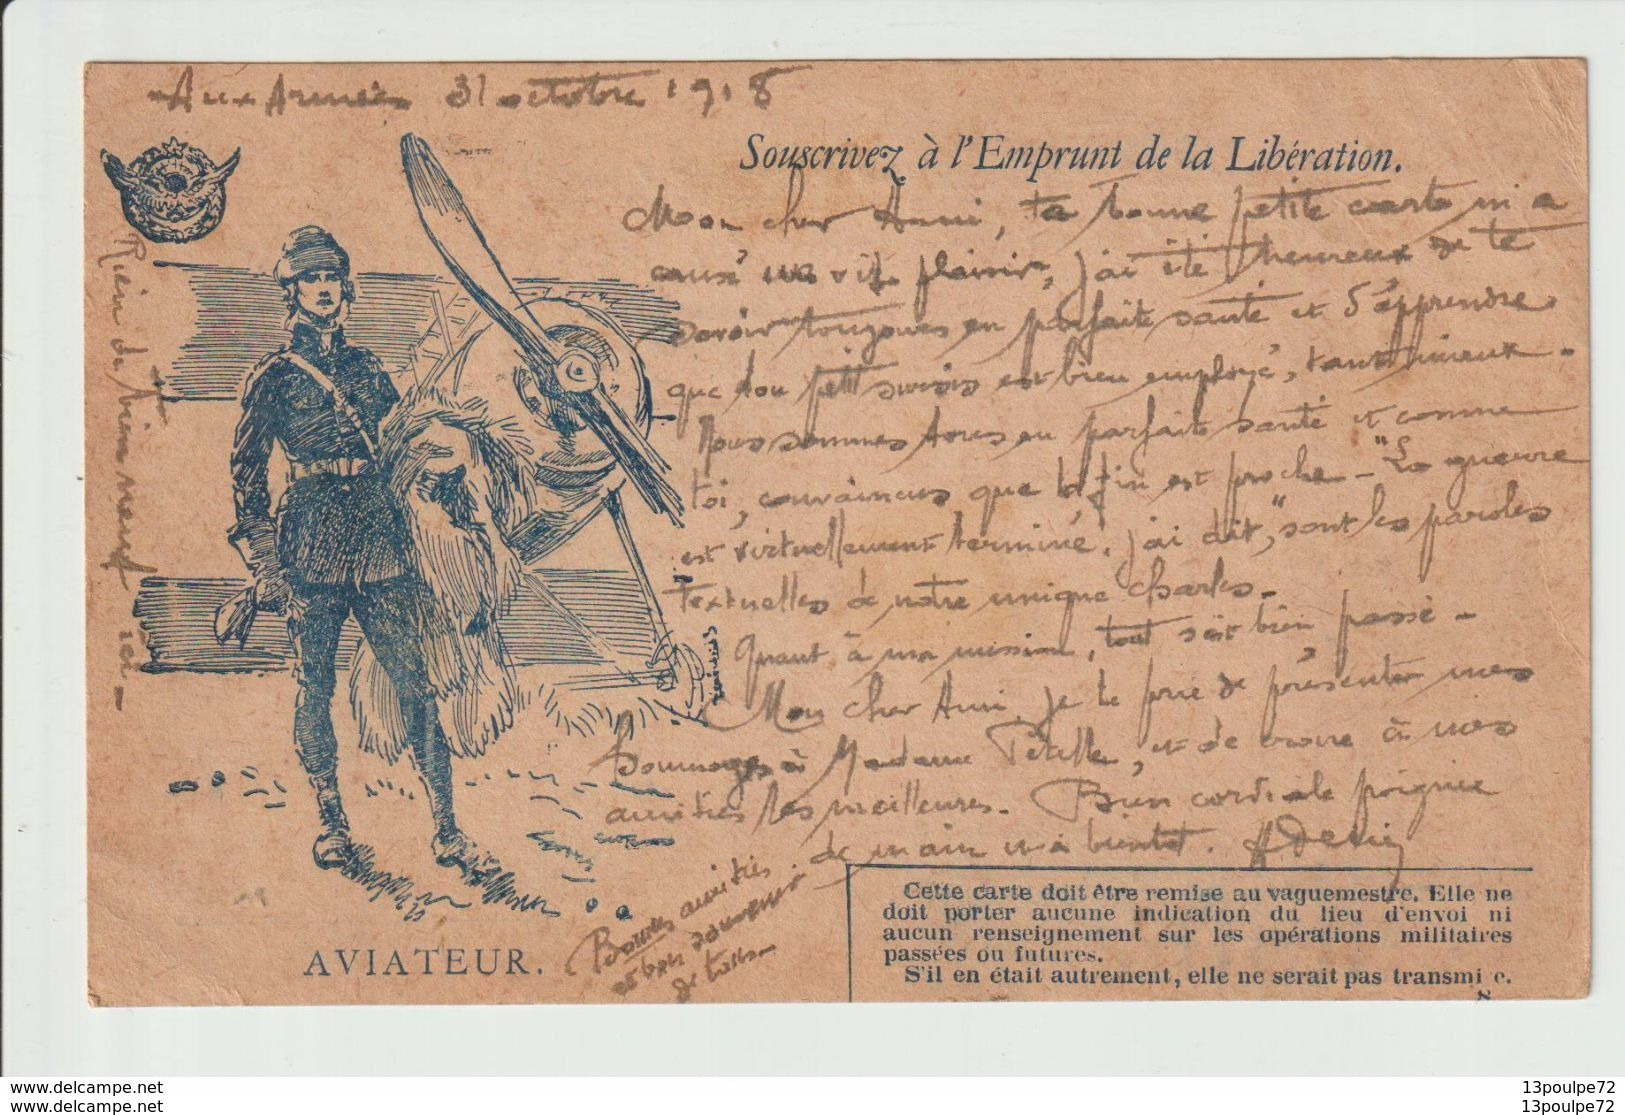 Aux Armées 31 octobre 1918
Souscrivez à l'Emprunt de la Libération.
Mon cher Ami, ta bonne petite carte m'a
causé un vif plaisir, j'ai été heureux de te
savoir toujours en parfaite santé et d'apprendre
que ton petit sursis est bien employé, tant mieux.
Nous sommes tous en parfaite santé et comme
toi, convaincus que la fin est proche - "La guerre
est virtuellement terminé, j'ai dit", sont les paroles
textuelles de notre unique Charles.
Quant à ma mission, tout s'est bien passé -
Mon cher Ami, je te prie de présenter mes
hommages à Madame et de croire à mes
amitiés les meilleures. Bien cordiale poignée
de main et à bientôt.
Bonnes amitiés
et bon souvenir
de tous.
Rien de bien neuf ici -
AVIATEUR.
Cette carte doit être remise au vaguemestre. Elle ne
doit porter aucune indication du lieu d'envoi ni
aucun renseignement sur les opérations militaires
passées ou futures.
S'il en était autrement, elle ne serait pas transmi e.
www.delcampe.net 13poulpe72
www.delcampe.net 13poulpe72